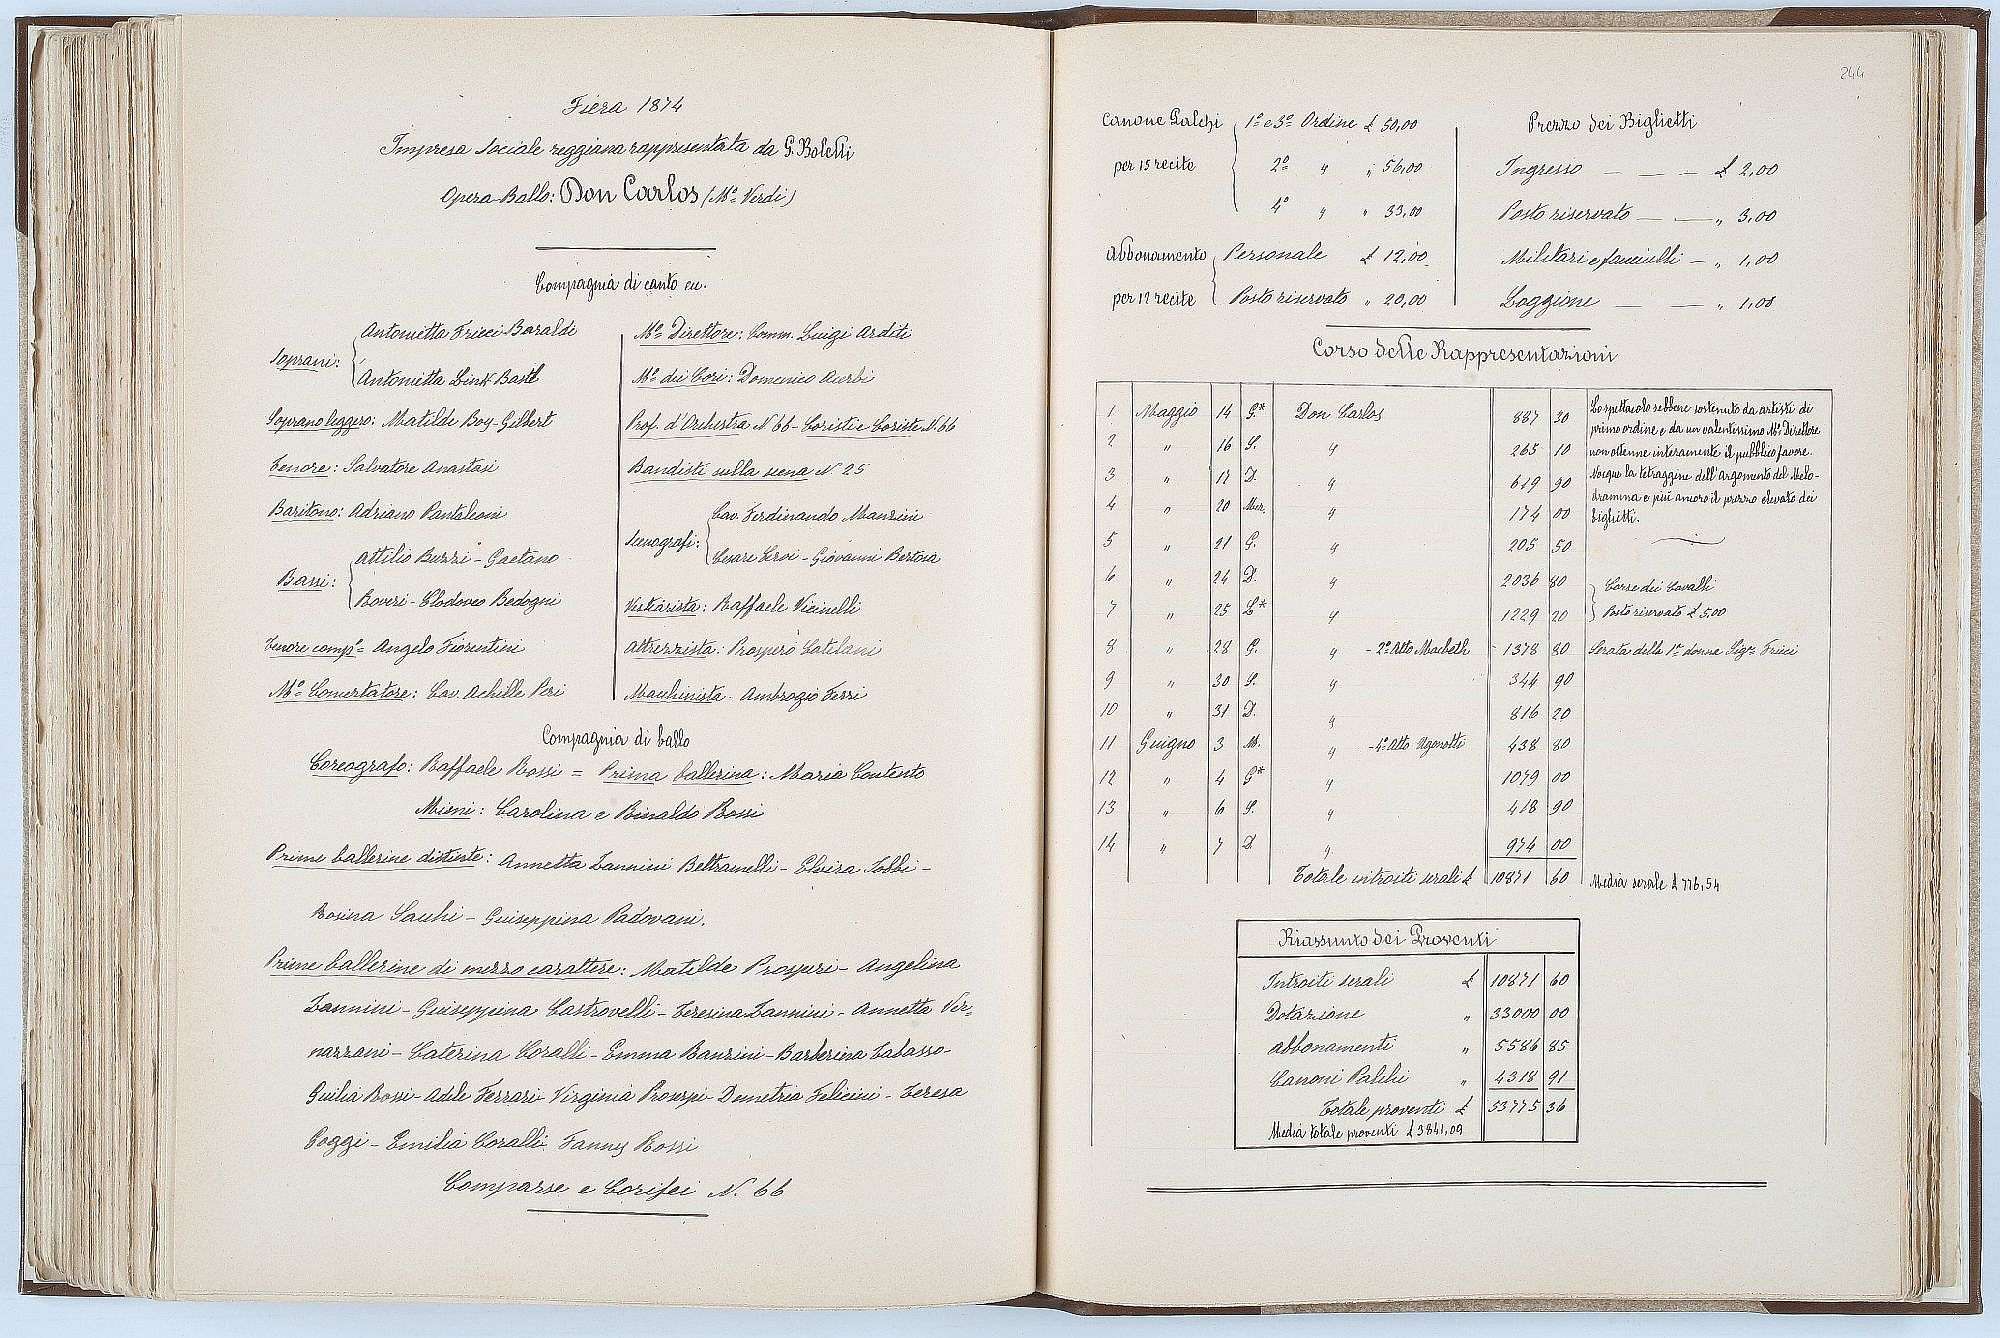 Fiera 1874
Impresa Sociale reggiana rappresentata da G. Boletti
Opera-Ballo: Don Carlos (Mº Verdi)
Compagnia di canto ecc.
Soprani: Antonietta Fricci Baraldi
Antonietta Link Bastl
Soprano leggero: Matilde Boy-Gilbert
Tenore: Salvatore Anastasi
Baritono: Adriano Pantaleoni
Bassi: Attilio Buzzi - Gaetano
Roveri - Clodoveo Bedogni
Tenore compº Angelo Fiorentini
Mº Concertatore: Cav. Achille Peri
Mº Direttore: Comm. Luigi Arditi
Mº dei Cori: Domenico Acerbi
Prof. d'Orchestra N 66 - Coristi e Coriste N. 66
Bandisti sulla scena N 25
Scenografi: Cav. Ferdinando Manzini
Cesare Leroi - Giovanni Bertoia
Vestiarista: Raffaele Vicinelli
Attrezzista: Prospero Catilani
Macchinista - Ambrogio Ferri
Compagnia di ballo
Coreografo: Raffaele Rossi = Prima ballerina: Maria Contento
Mimi: Carolina e Rinaldo Rossi
Prime ballerine distinte: Annetta Zannini Beltramelli - Elvira Tobbi -
Rosina Sacchi - Guiseppina Padovani.
Prime ballerine di mezzo carattere: Matilde Prosperi - Angelina
Zannini - Guiseppina Castrovelli - Teresina Zannini - Annetta Ver-
nazzani - Caterina Coralli - Emma Banzini - Barberina Cabasso -
Guilia Rossi - Adele Ferrari - Virginia Prosepi - Demetria Felicini - Teresa
Coggi - Emilia Coralli. Fanny Rossi
Comparse e Corifei N. 66
244
Canone Palchi per 15 recite
1º e 3º Ordine £ 50,00
2º " " 56,00
4º " " 33,00
Abbonamento per 12 recite
Personale £ 12,00
Posto riservato " 20,00
Prezzo dei Biglietti
Ingresso — — — £ 2,00
Posto riservato — — " 3,00
Militari e fanciulli — " 1,00
Loggione — — " 1,00
Corso delle Rappresentazioni
1 Maggio 14 G* Don Carlos 887 30
2 " 16 S. " 265 10
3 " 17 D. " 619 90
4 " 20 Mer. " 174 00
5 " 21 G. " 205 50
6 " 24 D. " 2036 80
7 " 25 L* " 1229 20
8 " 28 G. " - 2º Atto Macbeth - 1378 80
9 " 30 S. " 344 90
10 " 31 D. " 816 20
11 Guigno 3 M. " - 4º Atto Ugonotti 438 80
12 " 4 G* " 1079 00
13 " 6 S. " 418 90
14 " 7 D " 974 00
Totale introiti serali £ 10871 60
Lo spettacolo sebbene sostenuto da artisti di
primo ordine e da un valentissimo Mº Direttore
non ottenne interamente il pubblico favore.
Nocque la tetraggine dell'argomento del Melo-
dramma e più ancora il prezzo elevato dei
biglietti.
Corse dei Cavalli
Posto riservato £ 5,00
Serata della 1ª donna Sigª Fricci
Media serale £ 776,54
Riassunto dei Proventi
Introiti serali £ 10871 60
Dotazione " 33000 00
Abbonamenti " 5586 85
Canoni Palchi " 4318 91
Totale proventi £ 53775 36
Media totale proventi £ 3841,09